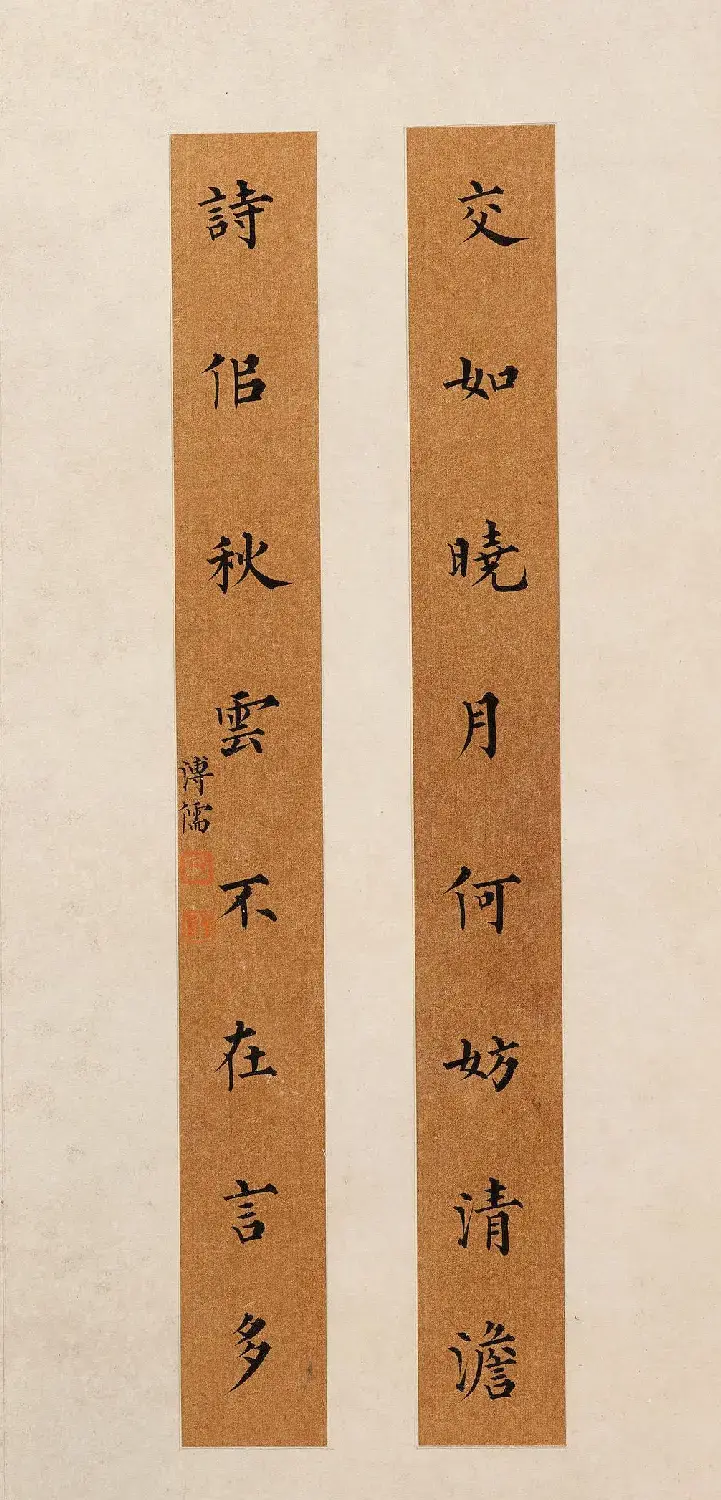 交如曉月何妨清澹
詩佀秋雲不在言多
溥儒